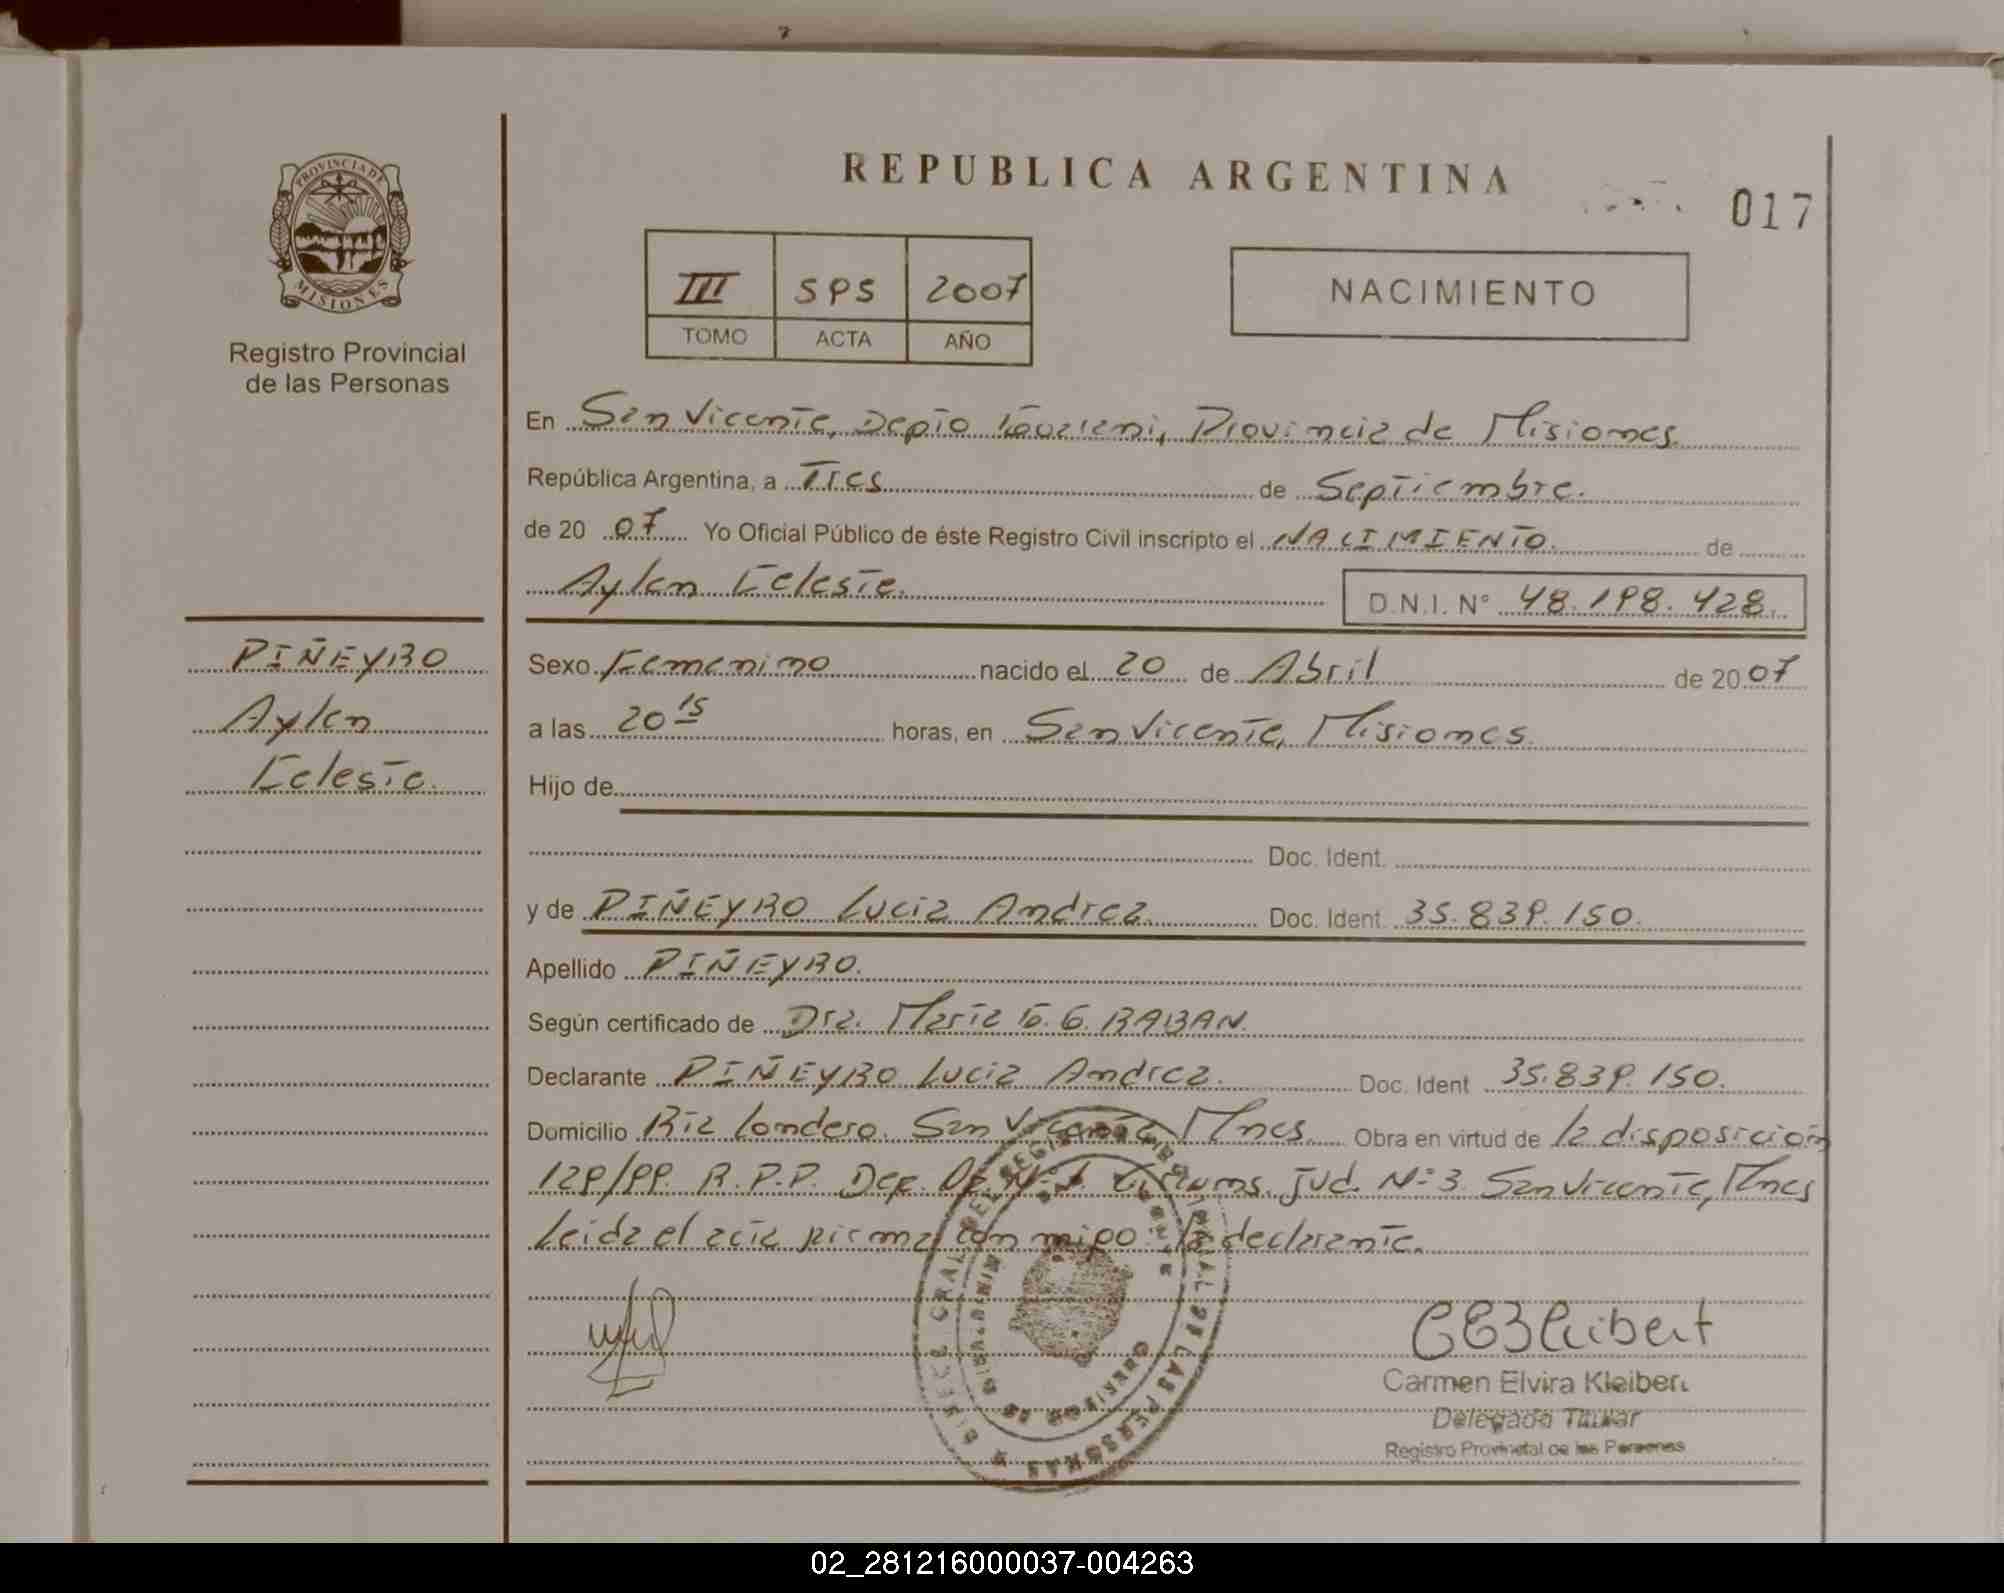 PROVINCIA DE
MISIONES
Registro Provincial
de las Personas
REPUBLICA ARGENTINA
017
III 595 2007
TOMO ACTA AÑO
NACIMIENTO
En San Vicente, Depto Guarani, Provincia de Misiones
República Argentina, a Tres de Septiembre.
de 20 07 Yo Oficial Público de éste Registro Civil inscripto el NACIMIENTO. de
Aylen Celeste. D.N.I. N° 48.198.428.
PIÑEYRO
Aylen
Celeste.
Sexo Femenino nacido el 20 de Abril de 20 07
a las 20 15 horas, en San Vicente, Misiones.
Hijo de
Doc. Ident.
y de PIÑEYRO Lucia Andrea. Doc. Ident. 35.839.150.
Apellido PIÑEYRO.
Según certificado de Dra. Maria G. G. RABAN.
Declarante PIÑEYRO Lucia Andrea. Doc. Ident 35.839.150.
Domicilio Bia Londero. San Vicente, Mnes. Obra en virtud de la disposición
129/99. R.P.P. Dep. Op. N°1. Circuns. jud. N°3 San Vicente, Mnes
Leida el acta firma con migo la declarante.
Carmen Elvira Kleibert
Delegado Titular
Registro Provincial de las Personas
02_281216000037-004263